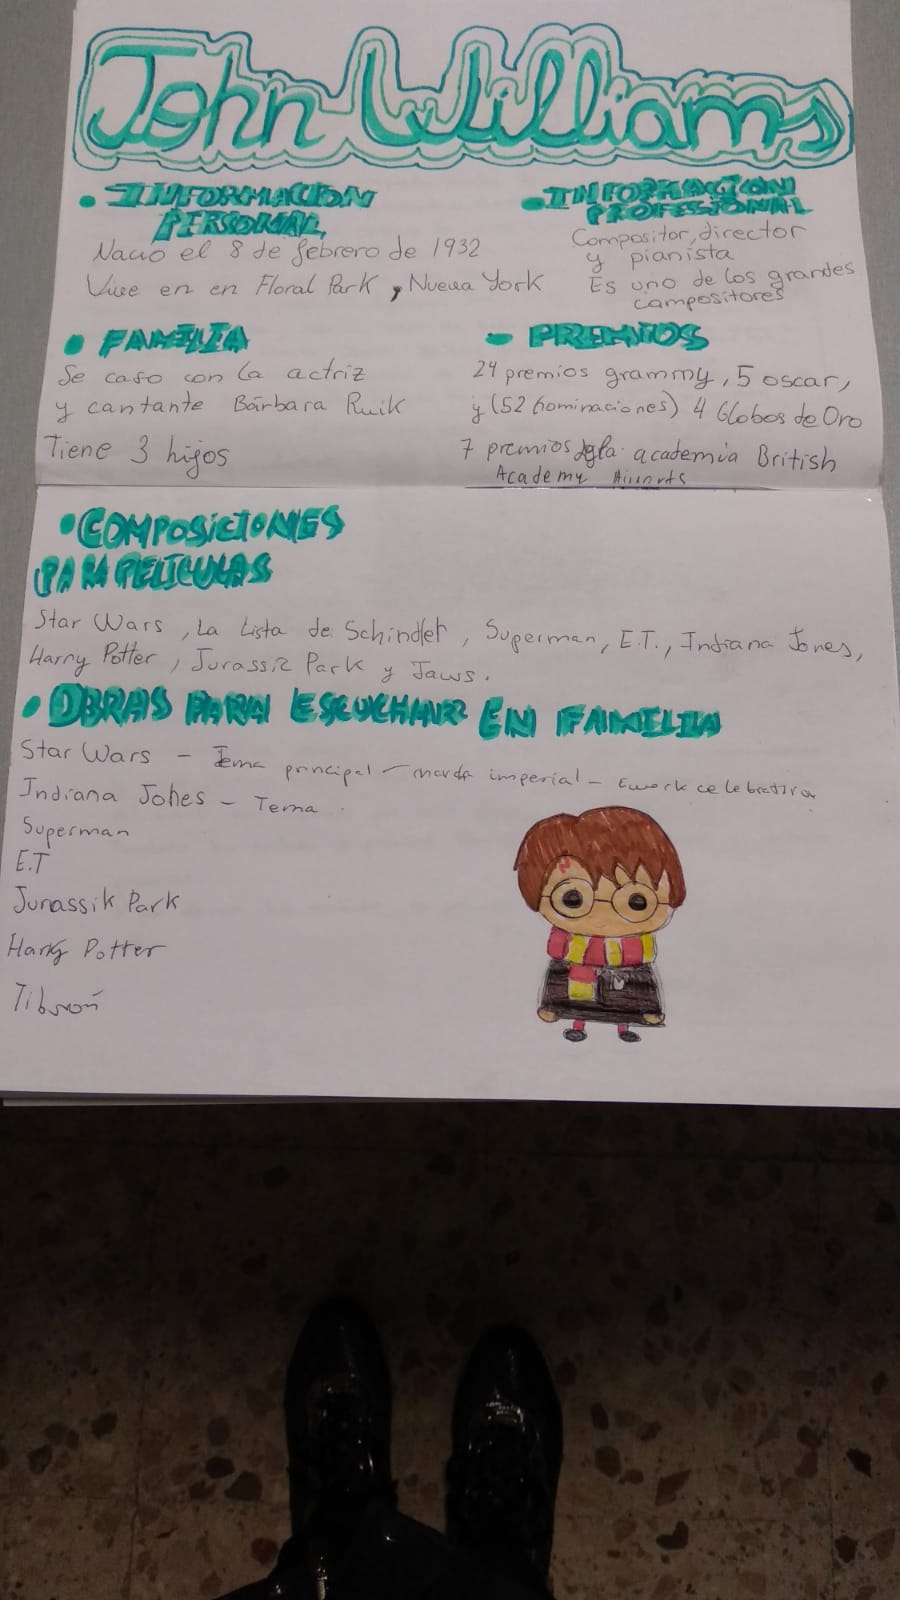 John Williams
• INFORMACION
PERSONAL
Nacio el 8 de febrero de 1932
Vive en en Floral Park, Nueva York
• INFORMACION
PROFESIONAL
Compositor, director
y pianista
Es uno de los grandes
compositores
• FAMILIA
Se caso con la actriz
y cantante Bárbara Ruik
Tiene 3 hijos
- PREMIOS
24 premios grammy, 5 oscar,
y (52 hominaciones) 4 Globos de Oro
7 premios de la academia British
Academy
• COMPOSICIONES
PARA PELICULAS
Star Wars, La Lista de Schindler, Superman, E.T., Indiana Jones,
Harry Potter, Jurassic Park y Jaws.
• OBRAS PARA ESCUCHAR EN FAMILIA
Star Wars - Tema principal - marcha imperial -
Indiana Jones - Tema.
Superman
E.T
Jurassik Park
Harry Potter
Tiburón